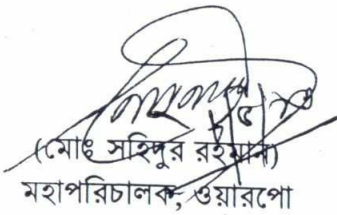 (মোঃ সহিদুর রহমান)
মহাপরিচালক, ওয়ারপো